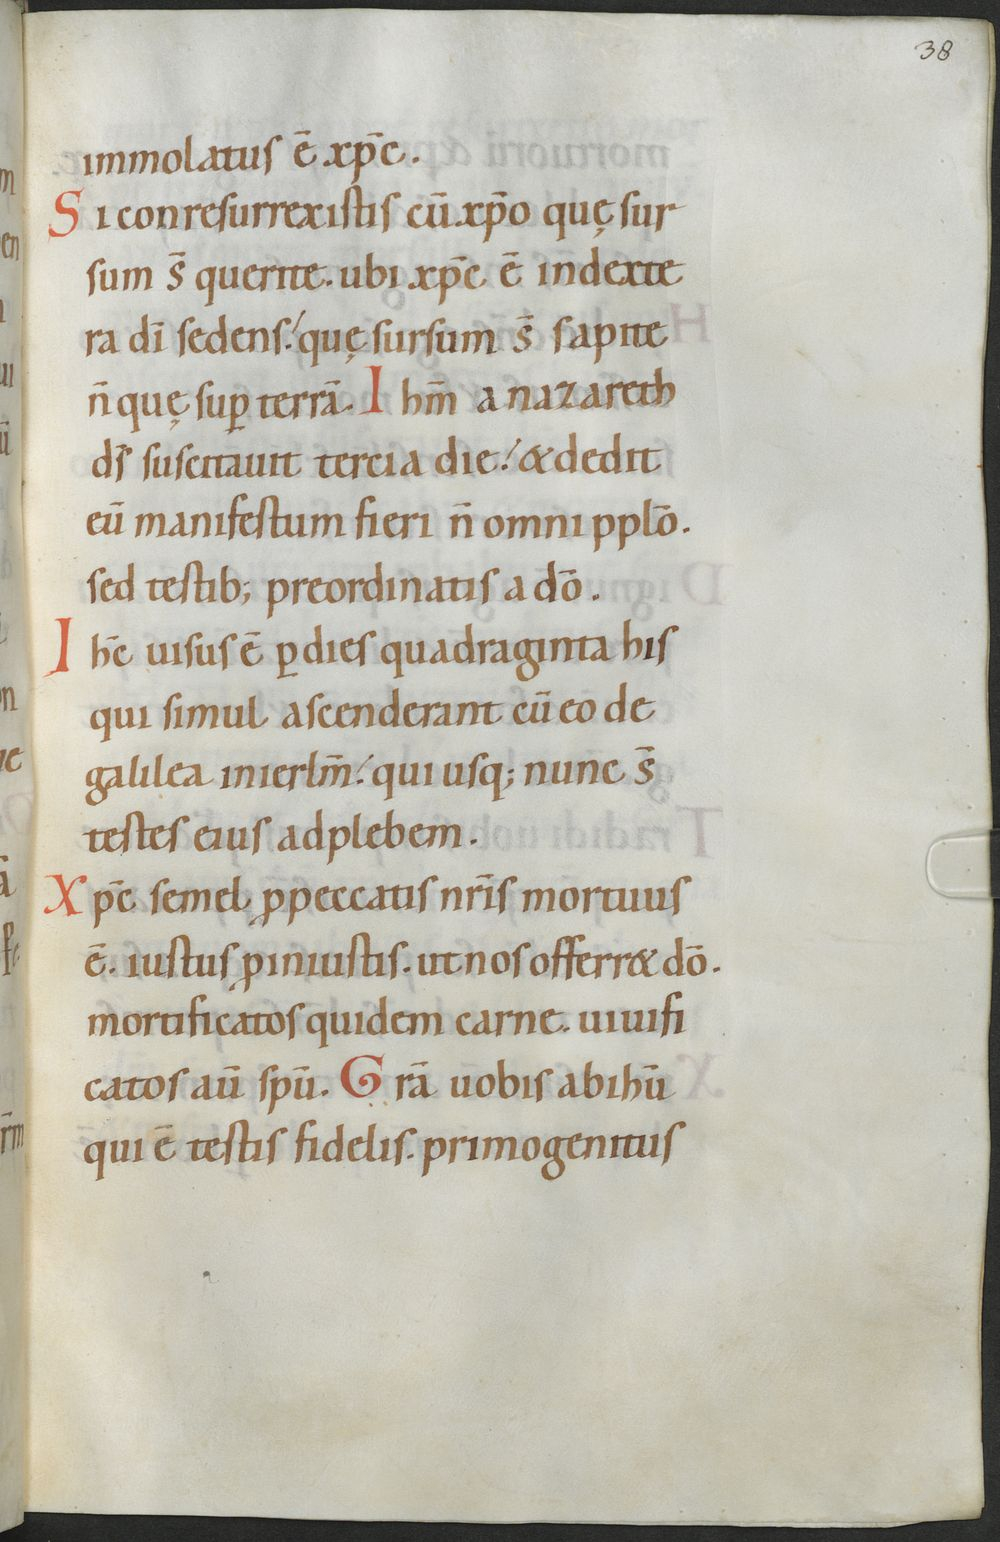 38
immolatus ē xp̄c.
Si conresurrexistis cū xp̄o quę sur
sum s̄ querite. ubi xp̄c ē in dexte
ra dī sedens. quę sursum s̄ sapite
n̄ quę sup̱ terrā. Ihm̄ a nazareth
ds̄ suscitauit tercia die. & dedit
eū manifestum fieri n̄ omni pplō.
sed testib; preordinatis a dō.
Ihc̄ uisus ē p̱ dies quadraginta his
qui simul ascenderant cū eo de
galilea in ierlm̄. qui usq; nunc s̄
testes eius ad plebem.
Xpc̄ semel ꝓ peccatis nrīs mortuus
ē. iustus ꝓ iniustis. ut nos offerr& dō.
mortificatos quidem carne. uiuifi
catos aū spū. Grā uobis ab ihū
qui ē testis fidelis. primogenitus